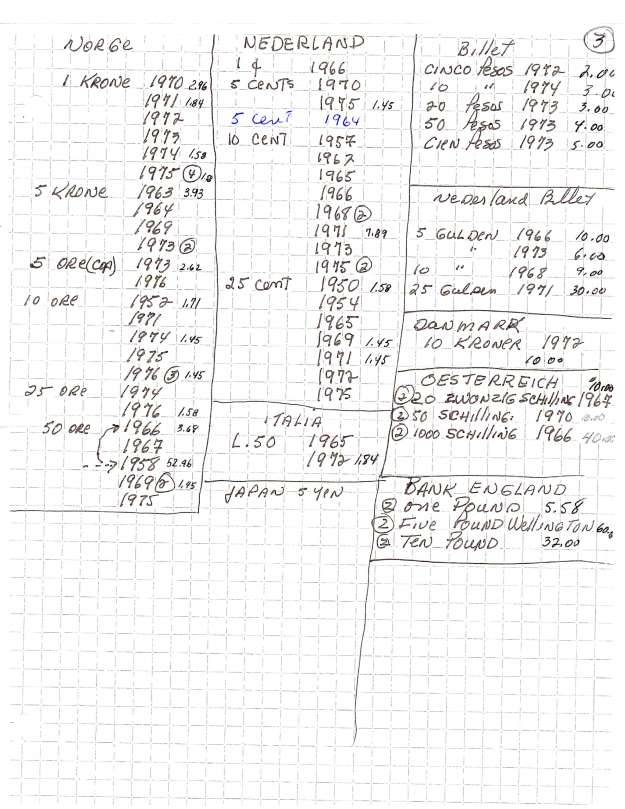 3
NORGE
1 KRONE 1970 2.96
1971 1.84
1972
1973
1974 1.58
1975 4
5 KRONE 1963 3.93
1964
1969
1973 2
5 ORE (COP) 1973 2.62
1976
10 ORE 1952 1.71
1971
1974 1.45
1975
1976 3 1.45
25 ORE 1974
1976 1.58
50 ORE 1966 3.68
1967
1958 52.96
1969 2 1.45
1975
NEDERLAND
1 ¢ 1966
5 CENTS 1970
1975 1.45
5 Cent 1964
10 CENT 1957
1962
1965
1966
1968 2
1971 7.89
1973
1975 2
25 Cent 1950 1.58
1954
1965
1969 1.45
1971 1.45
1972
1975
ITALIA
L.50 1965
1972 1.84
JAPAN 5 YEN
Billet
CINCO Pesos 1972 2.00
10 " 1974 3.00
20 Pesos 1973 3.00
50 Pesos 1973 4.00
CIEN Pesos 1973 5.00
Nederland Billet
5 GULDEN 1966 10.00
" 1973 6.00
10 " 1968 9.00
25 Gulden 1971 30.00
DANMARK
10 KRONER 1972
10.00
OESTERREICH 10.00
2 20 ZWONZIG SCHILLING 1967
2 50 SCHILLING 1970
2 1000 SCHILLING 1966 40.00
BANK ENGLAND
2 ONE POUND 5.58
2 FIVE POUND WELLINGTON
2 TEN POUND 32.00